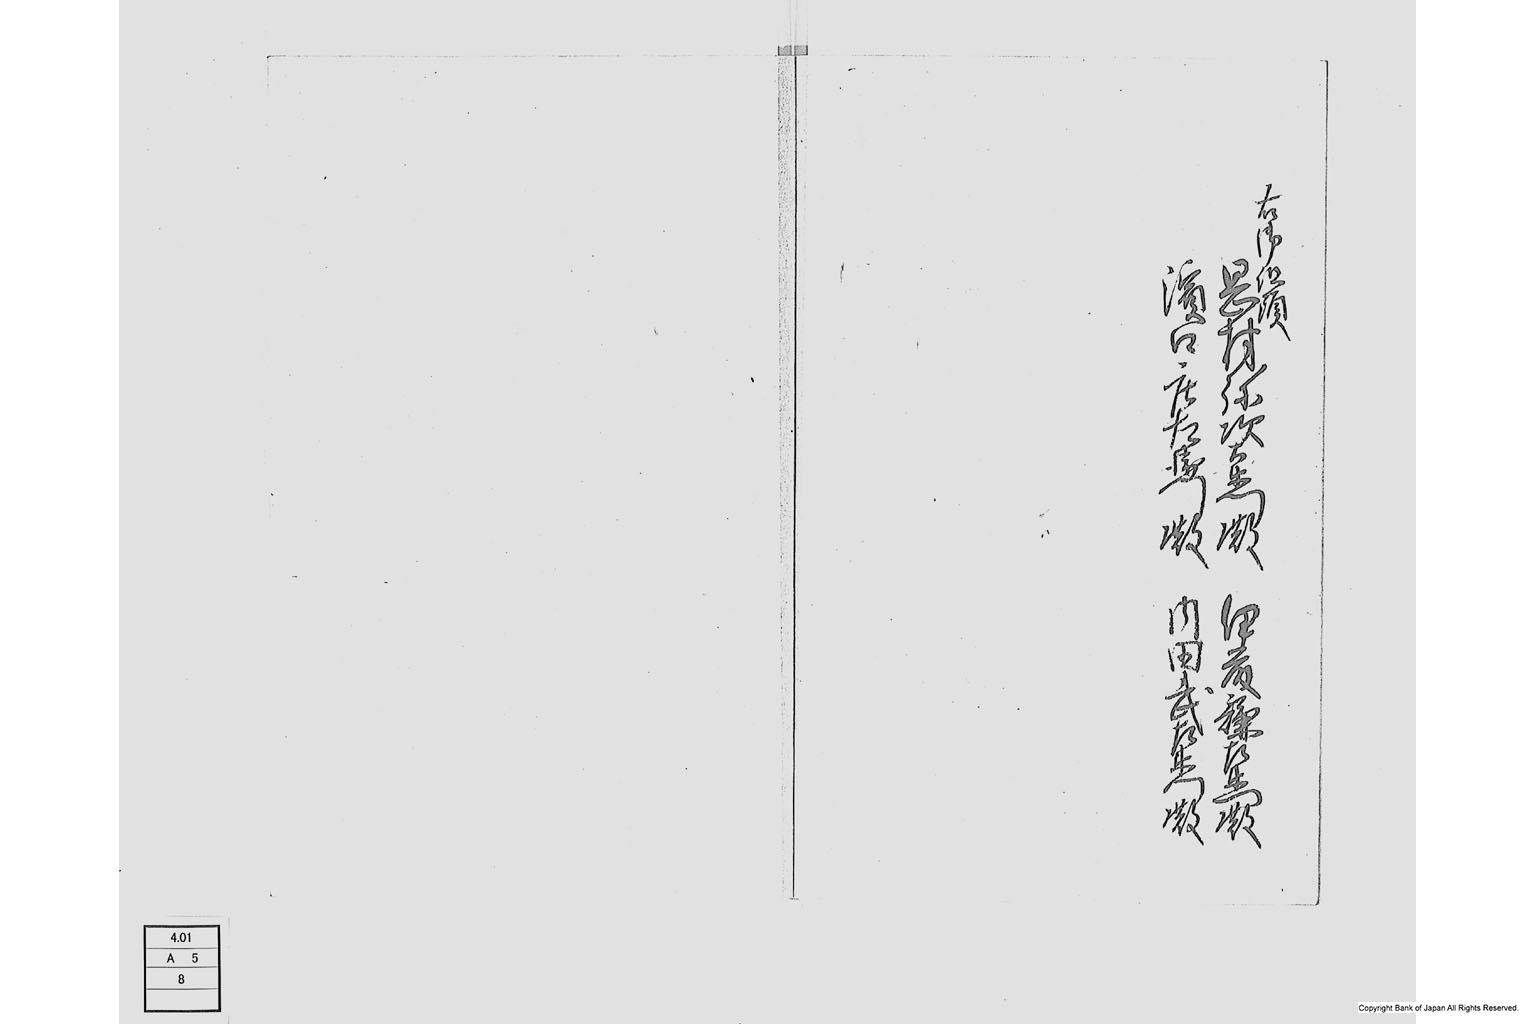 右御組頭
村弥次右衛門殿
伊藤
左衛門殿
濱口庄左衛門殿
内田武左衛門殿
4.01
A 5
8
Copyright Bank of Japan All Rights Reserved.